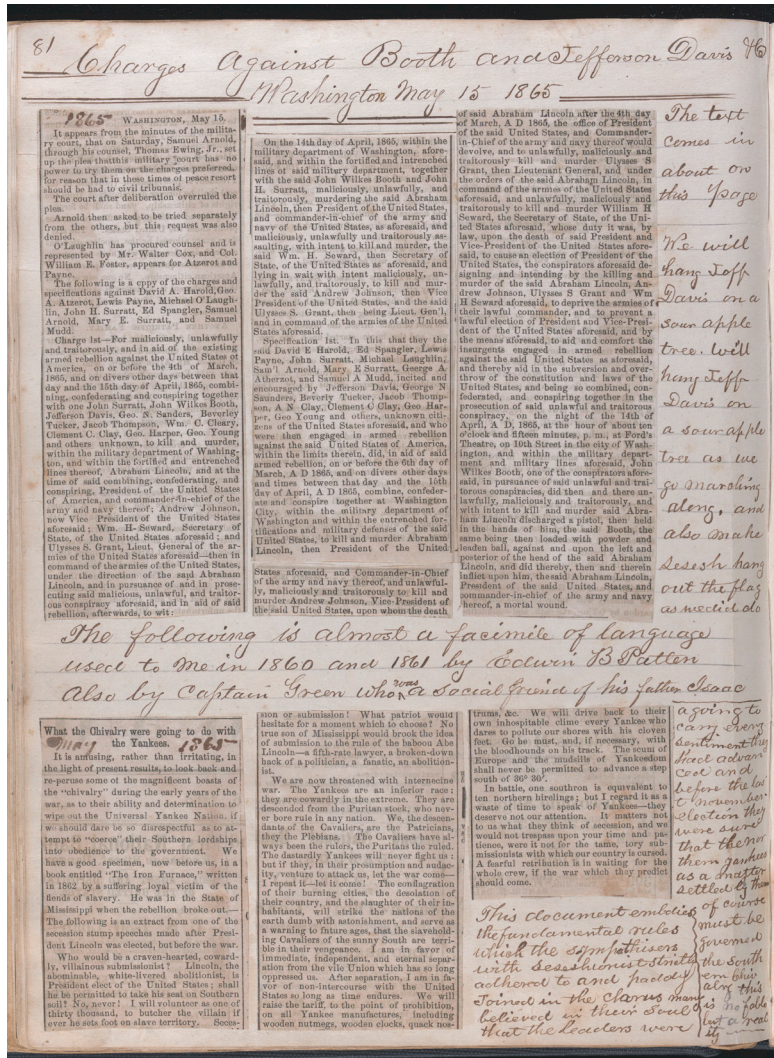 81
Charges Against Booth and Jefferson Davis &c
Washington May 15 1865
1865
WASHINGTON, May 15.
It appears from the minutes of the milita-
ry court, that on Saturday, Samuel Arnold,
through his counsel, Thomas Ewing, Jr., set
up the plea thatthis military court has no
power to try them on the charges preferred,
for reason that in these times of peace resort
should be had to civil tribunals.
The court after deliberation overruled the
plea.
Arnold then asked to be tried separately
from the others, but this request was also
denied.
O'Laughlin has procured counsel and is
represented by Mr. Walter Cox, and Col.
William E. Foster, appears for Atzerot and
Payne.
The following is a copy of the charges and
specifications against David A. Harold, Geo.
A. Atzerot, Lewis Payne, Michael O'Laugh-
lin, John H. Surratt, Ed Spangler, Samuel
Arnold, Mary E. Surratt, and Samuel
Mudd.
Charge 1st—For maliciously, unlawfully
and traitorously, and in aid of the existing
armed rebellion against the United States of
America, on or before the 4th of March,
1865, and on divers other days between that
day and the 15th day of April, 1865, combi-
ning, confederating and conspiring together
with one John Surratt, John Wilkes Booth,
Jefferson Davis, Geo. N. Sanders, Beverley
Tucker, Jacob Thompson, Wm. C. Cleary,
Clement C. Clay, Geo. Harper, Geo. Young
and others unknown, to kill and murder,
within the military department of Washing-
ton, and within the fortified and entrenched
lines thereof, Abraham Lincoln, and at the
time of said combining, confederating, and
conspiring, President of the United States
of America, and commander-in-chief of the
army and navy thereof; Andrew Johnson,
now Vice President of the United States
aforesaid; Wm. H-Seward, Secretary of
State, of the United States aforesaid; and
Ulysses S. Grant, Lieut. General of the ar-
mies of the United States aforesaid—then in
command of the armies of the United States,
under the direction of the said Abraham
Lincoln, and in pursuance of and in prose-
cuting said malicious, unlawful, and traitor-
ous conspiracy aforesaid, and in aid of said
rebellion, afterwards, to wit:
On the 14th day of April, 1865, within the
military department of Washington, afore-
said, and within the fortified and intrenched
lines of said military department, together
with the said John Wilkes Booth and John
H. Surratt, maliciously, unlawfully, and
traitorously, murdering the said Abraham
Lincoln, then President of the United States,
and commander-in-chief of the army and
navy of the United States, as aforesaid, and
maliciously, unlawfully und traitorously as-
saulting, with intent to kill and murder, the
said Wm. H. Seward, then Secretary of
State, of the United States as aforesaid, and
lying in wait with intent maliciously, un-
lawfully, and traitorously, to kill and mur-
der the said Andrew Johnson, then Vice
President of the United States, and the said
Ulysses S. Grant, then being Lieut. Gen'l,
and in command of the armies of the United
States aforesaid.
Specification 1st. In this that they the
said David E Harold, Ed Spangler, Lewis
Payne, John Surratt, Michael Loughlin,
Sam'l Arnold, Mary E Surratt, George A
Atherzot, and Samuel A Mudd, incited and
encouraged by Jefferson Davis, George N
Saunders, Beverly Tucker, Jacob Thomp-
son, A N Clay, Clement C Clay, Geo Har-
per, Geo Young and others, unknown citi-
zens of the United States aforesaid, and who
were then engaged in armed rebellion
against the said United States of America,
within the limits therein, did, in aid of said
armed rebellion, on or before the 6th day of
March, A D 1865, and on divers other days
and times between that day and the 15th
day of April, A D 1865, combine, confeder-
ate and conspire together at Washington
City, within the military department of
Washington and within the entrenched for-
tifications and military defenses of the said
United States, to kill and murder Abraham
Lincoln, then President of the United
States aforesaid, and Commander-in-Chief
of the army and navy thereof, and unlawful-
ly, maliciously and traitorously to kill and
murder Andrew Johnson, Vice-President of
the said United States, upon whom the death
of said Abraham Lincoln after the 4th day
of March, A D 1865, the office of President
of the said United States, and Commander-
in-Chief of the army and navy thereof would
devolve, and to unlawfully, maliciously and
traitorously kill and murder Ulysses S
Grant, then Lieutenant General, and under
the orders of the said Abraham Lincoln, in
command of the armies of the United States
aforesaid, and unlawfully, maliciously and
traitorously to kill and murder William H
Seward, the Secretary of State, of the Uni-
ted States aforesaid, whose duty it was, by
law, upon the death of said President and
Vice-President of the United States afore-
said, to cause an election of President of the
United States, the conspirators aforesaid de-
signing and intending by the killing and
murder of the said Abraham Lincoln, An-
drew Johnson, Ulysses S Grant and Wm
H Seward aforesaid, to deprive the armies of
their lawful commander, and to prevent a
lawful election of President and Vice-Presi-
dent of the United States aforesaid, and by
the means aforesaid, to aid and comfort the
insurgents engaged in armed rebellion
against the said United States as aforesaid,
and thereby aid in the subversion and over-
throw of the constitution and laws of the
United States, and being so combined, con-
federated, and conspiring together in the
prosecution of said unlawful and traitorous
conspiracy, on the night of the 14th of
April, A D 1865, at the hour of about ten
o'clock and fifteen minutes, p. m., at Ford's
Theatre, on 10th Street in the city of Wash-
ington, and within the military depart-
ment and military lines aforesaid, John
Wilkes Booth, one of the conspirators afore-
said, in pursuance of said unlawful and trai-
torous conspiracies, did then and there un-
lawfully, maliciously and traitorously, and
with intent to kill and murder said Abra-
ham Lincoln discharged a pistol, then held
in the hands of him, the said Booth, the
same being then loaded with powder and
leaden ball, against and upon the left and
posterior of the head of the said Abraham
Lincoln, and did thereby, then and therein
inflict upon him, the said Abraham Lincoln,
President of the said United States, and
commander-in-chief of the army and navy
thereof, a mortal wound.
The text
comes in
about on
this page
We will
hang Jeff
Davis on a
sour apple
tree. will
hang Jeff
Davis on
a sour apple
tree as we
go marching
along, and
also make
sesesh hang
out the flag
as we did do
The following is almost a facimile of language
used to me in 1860 and 1861 by Edwin B Patten
Also by Captain Green who was a Social friend of his father Isaac
What the Chivalry were going to do with
the Yankees.
May 1865
It is amusing, rather than irritating, in
the light of present results, to look back and
re-peruse some of the magnificent boasts of
the "chivalry" during the early years of the
war, as to their ability and determination to
wipe out the Universal Yankee Nation, if
we should dare be so disrespectful as to at-
tempt to "coerce" their Southern lordships
into obedience to the government. We
have a good specimen, now before us, in a
book entitled "The Iron Furnace," written
in 1862 by a suffering loyal victim of the
fiends of slavery. He was in the State of
Mississippi when the rebellion broke out.—
The following is an extract from one of the
secession stump speeches made after Presi-
dent Lincoln was elected, but before the war.
Who would be a craven-hearted, coward-
ly, villainous submissionist? Lincoln, the
abominable, white-livered abolitionist, is
President elect of the United States; shall
he be permitted to take his seat on Southern
soil? No, never! I will volunteer as one of
thirty thousand, to butcher the villain if
ever he sets foot on slave territory. Seces-
sion or submission! What patriot would
hesitate for a moment which to choose? No
true son of Mississippi would brook the idea
of submission to the rule of the baboon Abe
Lincoln—a fifth-rate lawyer, a broken-down
hack of a politician, a fanatic, an abolition-
ist.
We are now threatened with internecine
war. The Yankees are an inferior race;
they are cowardly in the extreme. They are
descended from the Puritan stock, who nev-
er bore rule in any nation. We, the descen-
dants of the Cavaliers, are the Patricians,
they the Plebians. The Cavaliers have al-
ways been the rulers, the Puritans the ruled.
The dastardly Yankees will never fight us;
but if they, in their presumption and audac-
ity, venture to attack us, let the war come—
I repeat it—let it come! The conflagration
of their burning cities, the desolation of
their country, and the slaughter of their in-
habitants, will strike the nations of the
earth dumb with astonishment, and serve as
a warning to future ages, that the slavehold-
ing Cavaliers of the sunny South are terri-
ble in their vengeance. I am in favor of
immediate, independent, and eternal separ-
ation from the vile Union which has so long
oppressed us. After separation, I am in fa-
vor of non-intercourse with the United
States so long as time endures. We will
raise the tariff, to the point of prohibition,
on all Yankee manufactures, including
wooden nutmegs, wooden clocks, quack nos-
trums, &c. We will drive back to their
own inhospitable clime every Yankee who
dares to pollute our shores with his cloven
feet. Go he must, and, if necessary, with
the bloodhounds on his track. The scum of
Europe and the mudsills of Yankeedom
shall never be permitted to advance a step
south of 36° 30'.
In battle, one southron is equivalent to
ten northern hirelings; but I regard it as a
waste of time to speak of Yankees—they
deserve not our attention. It matters not
to us what they think of secession, and we
would not trespass upon your time and pa-
tience, were it not for the tame, tory sub-
missionists with which our country is cursed.
A fearful retribution is in waiting for the
whole crew, if the war which they predict
should come.
This document embodies
the fundamental rules
which the sympathisers
with Sesashionist strictly
adhered to and
Joined in the clorus many
believed in their Soul
that the Leaders were
a going to
carry every
sentiment they
had advan
ced and
before the las
t november
election they
were sure
that the nor
thern yankees
as a matter
settled by them
of course
must be
governed
the south
ern Chiv
alry this
is no fable
but a real
ity